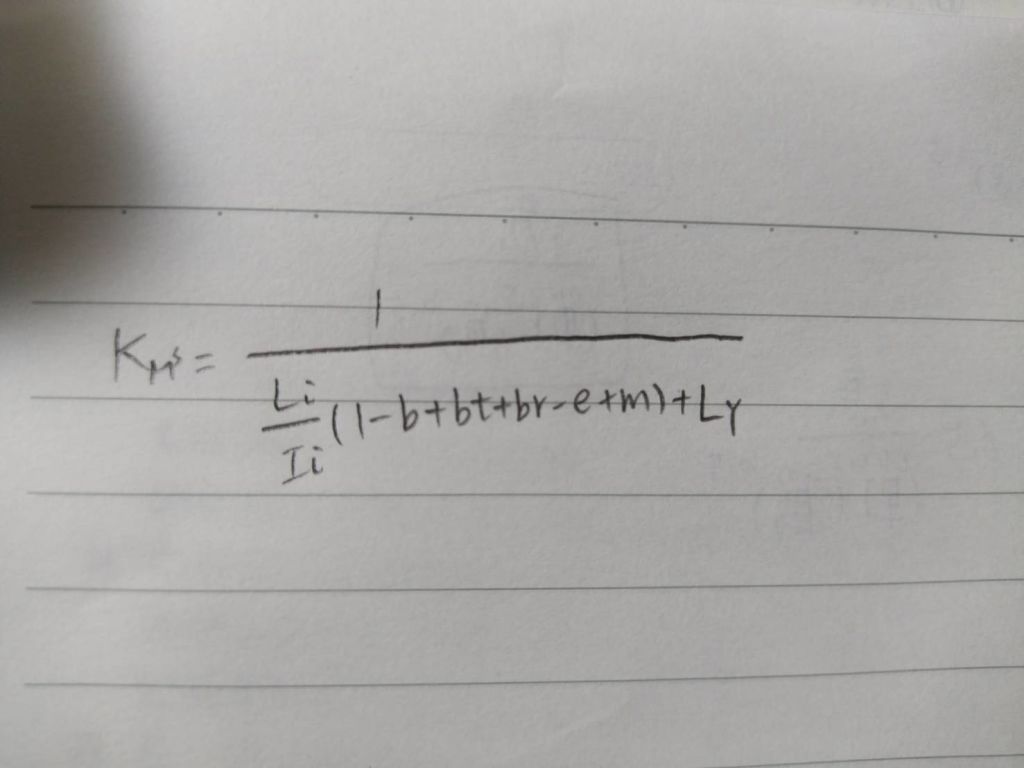 K_{Ms} = \frac{1}{\frac{Li}{Ii}(1-b+bt+br-e+m)+L_Y}